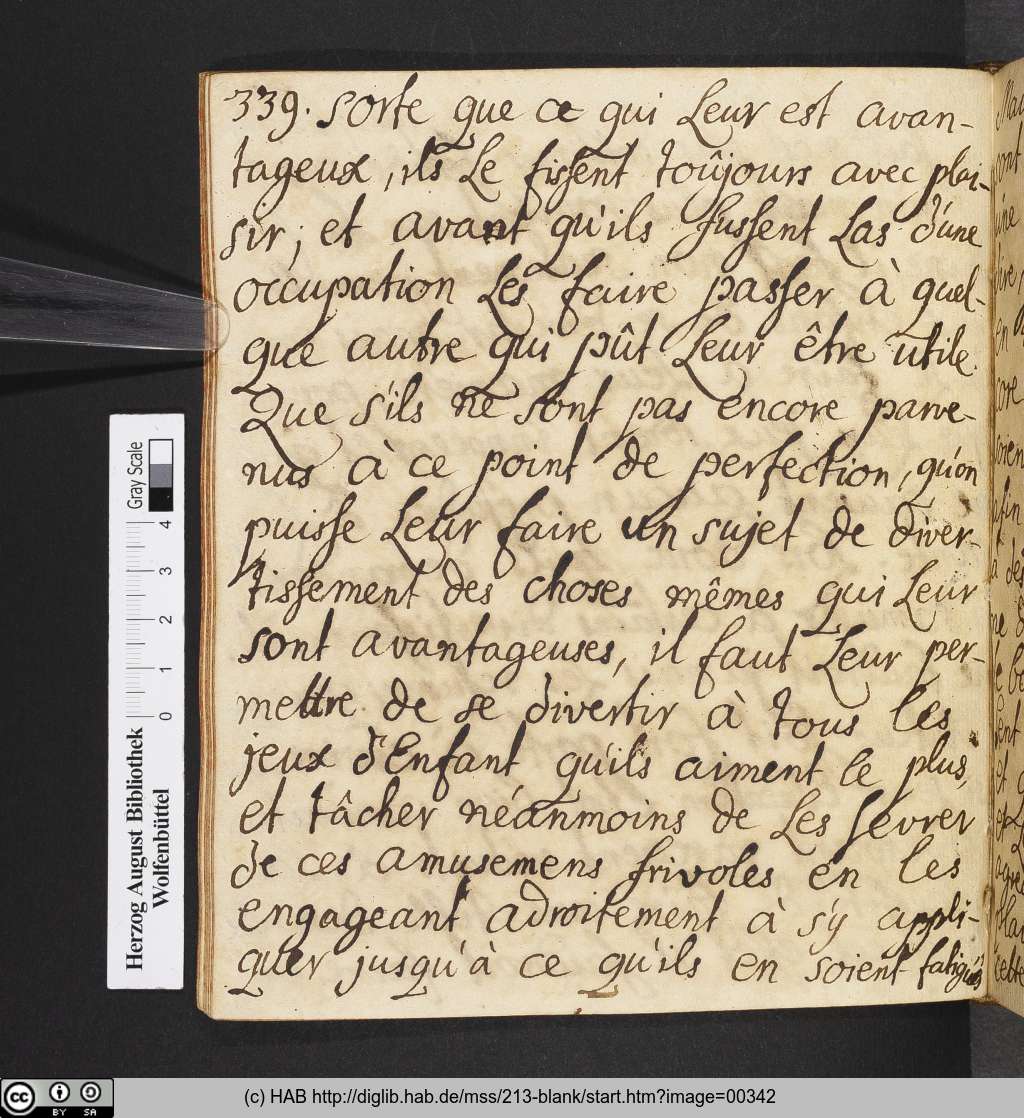 339. sorte que ce qui Leur est avan-
tageux, ils Le fissent toûjours avec plai-
sir; et avant qu'ils fussent Las d'une
occupation Les faire passer à quel-
que autre qui pût Leur être utile.
Que s'ils ne sont pas encore parve-
nus à ce point de perfection, qu'on
puisse Leur faire un sujet de diver-
tissement des choses mêmes qui Leur
sont avantageuses, il faut Leur per-
mettre de se divertir à tous les
jeux d'Enfant qu'ils aiment le plus,
et tâcher néanmoins de Les sevrer
de ces amusemens frivoles en les
engageant adroitement à s'y appli-
quer jusqu'à ce qu'ils en soient fatigués
Gray Scale
0 1 2 3 4
Herzog August Bibliothek
Wolfenbüttel
cc BY SA
(c) HAB http://diglib.hab.de/mss/213-blank/start.htm?image=00342